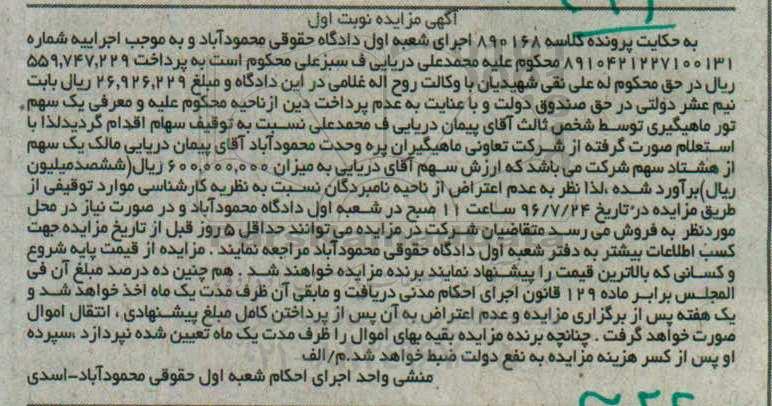 آگهی مزایده نوبت اول
به حکایت پرونده کلاسه ۸۹۰۱۶۸ اجرای شعبه اول دادگاه حقوقی محمودآباد و به موجب اجراییه شماره
۸۹۱۰۴۲۱۲۲۷۱۰۰۱۳۱ محکوم علیه محمدعلی دریایی ف سبزعلی محکوم است به پرداخت ۵۵۹,۷۴۷,۲۲۹
ریال در حق محکوم له علی نقی شهیدیان با وکالت روح اله غلامی در این دادگاه و مبلغ ۲۶,۹۲۶,۲۲۹ ریال بابت
نیم عشر دولتی در حق صندوق دولت و با عنایت به عدم پرداخت دین ازناحیه محکوم علیه و معرفی یک سهم
تور ماهیگیری توسط شخص ثالث آقای پیمان دریایی ف محمدعلی نسبت به توقیف سهام اقدام گردیدلذا با
استعلام صورت گرفته از شرکت تعاونی ماهیگیران پره وحدت محمودآباد آقای پیمان دریایی مالک یک سهم
از هشتاد سهم شرکت می باشد که ارزش سهم آقای دریایی به میزان ۶۰۰,۰۰۰,۰۰۰ ریال(ششصدمیلیون
ریال)برآورد شده ،لذا نظر به عدم اعتراض از ناحیه نامبردگان نسبت به نظریه کارشناسی موارد توقیفی از
طریق مزایده در تاریخ ۹۶/۷/۲۴ ساعت ۱۱ صبح در شعبه اول دادگاه محمودآباد و در صورت نیاز در محل
موردنظر به فروش می رسد متقاضیان شرکت در مزایده می توانند حداقل ۵روز قبل از تاریخ مزایده جهت
کسب اطلاعات بیشتر به دفتر شعبه اول دادگاه حقوقی محمودآباد مراجعه نمایند . مزایده از قیمت پایه شروع
و کسانی که بالاترین قیمت را پیشنهاد نمایند برنده مزایده خواهند شد . هم چنین ده درصد مبلغ آن فی
المجلس برابر ماده ۱۲۹ قانون اجرای احکام مدنی دریافت و مابقی آن ظرف مدت یک ماه اخذ خواهد شد و
یک هفته پس از برگزاری مزایده و عدم اعتراض به آن پس از پرداختن کامل مبلغ پیشنهادی ، انتقال اموال
صورت خواهد گرفت . چنانچه برنده مزایده بقیه بهای اموال را ظرف مدت یک ماه تعیین شده نپردازد ،سپرده
او پس از کسر هزینه مزایده به نفع دولت ضبط خواهد شد.م/الف
منشی واحد اجرای احکام شعبه اول حقوقی محمودآباد-اسدی